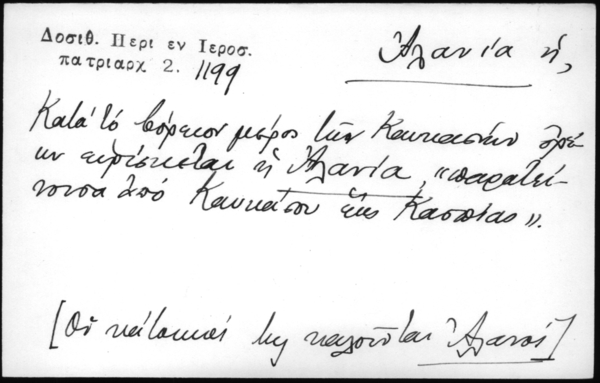 Δοσιθ. Περι εν Ιεροσ.
πατριαρχ 2. 1199
Ἀλανία ἡ,
Κατὰ τὸ βόρειον μέρος τῶν Καυκασίων ὀρέ-
ων εὑρίσκεται ἡ Ἀλανία, "παρατεί-
νουσα ἀπὸ Καυκάσου ἕως Κασπίας".
[Οἱ κάτοικοί της καλοῦνται Ἀλανοί]